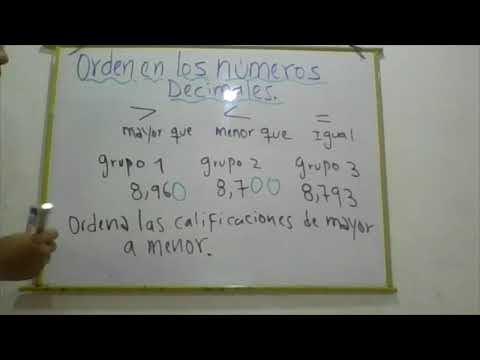 Orden en los números
Decimales.
> < =
mayor que menor que Igual
grupo 1 grupo 2 grupo 3
8,960 8,700 8,793
Ordena las calificaciones de mayor
a menor.